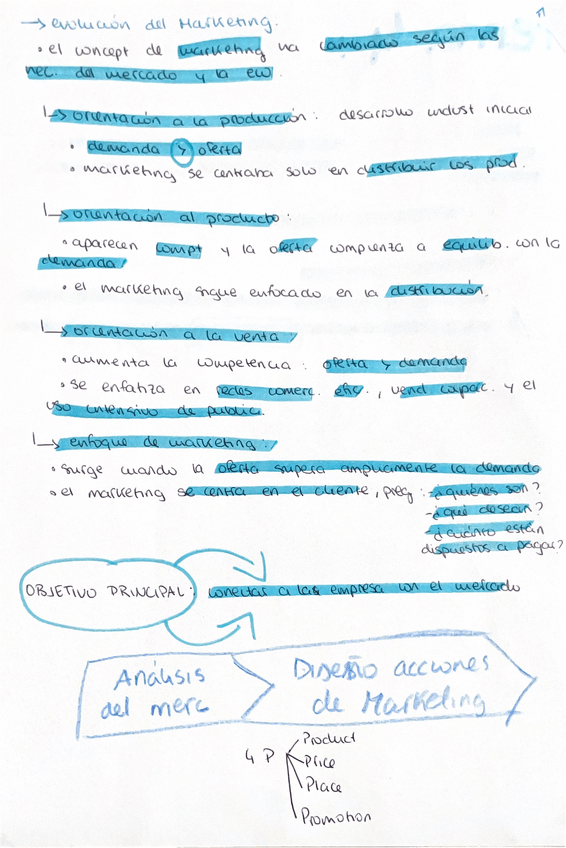 → evolución del Marketing.
• el concept de marketing ha cambiado según las
nec. del mercado y la eco.
↳ orientación a la producción: desarrollo indust inicial
• demanda > oferta
• marketing se centraba solo en distribuir los prod.
↳ orientación al producto:
• aparecen compt y la oferta compienza a equilib. con la
demanda.
• el marketing sigue enfocado en la distribución.
↳ orientación a la venta:
• aumenta la competencia: oferta > demanda
• se enfatiza en redes comerc. efic., vend capac. y el
uso intensivo de public.
↳ enfoque de marketing:
• surge cuando la oferta supera ampliamente la demanda
• el marketing se centra en el cliente, preg: -¿quiénes son?
-¿qué desean?
-¿cuánto están
dispuestos a pagar?
OBJETIVO PRINCIPAL: conectar a las empresa con el mercado
Análisis
del merc
Diseño acciones
de Marketing
4 P
Product
Price
Place
Promotion